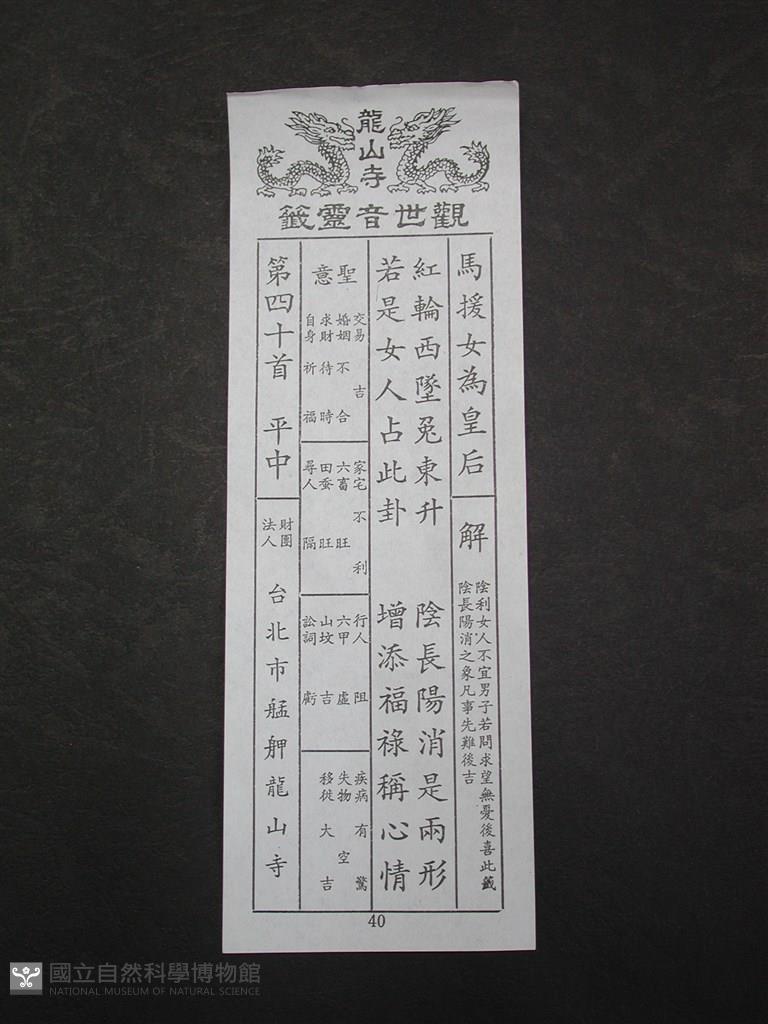 龍山寺
觀世音靈籤
馬援女為皇后
解
陰利女人不宜男子若問求望無憂後喜此籤
陰長陽消之象凡事先難後吉
紅輪西墜兔東升　陰長陽消是兩形
若是女人占此卦　增添福祿稱心情
聖意
交易　吉
婚姻　不合
求財　待時
自身　祈福
家宅　不利
六畜　旺
田蚕　旺
尋人　隔
行人　阻
六甲　虛
山坟　吉
訟詞　虧
疾病　有驚
失物　空
移徙　大吉
第四十首　平中
財團
法人
台北市艋舺龍山寺
40
國立自然科學博物館
NATIONAL MUSEUM OF NATURAL SCIENCE